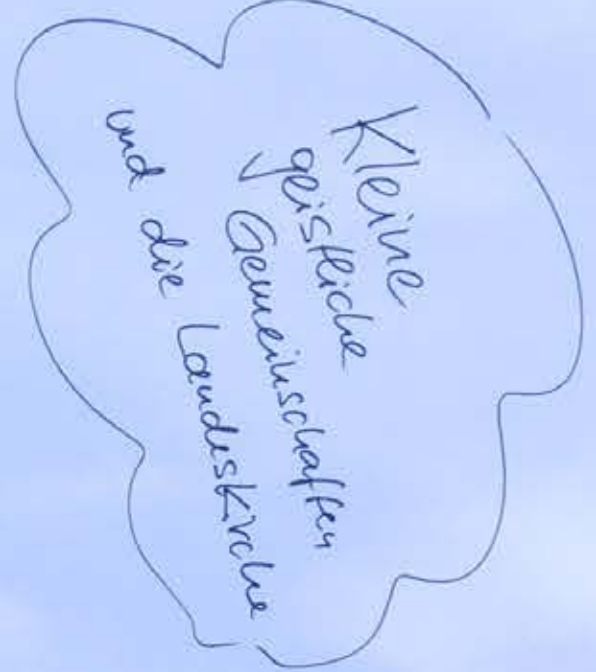 Kleine
geistliche
Gemeinschaften
und die Landeskirche